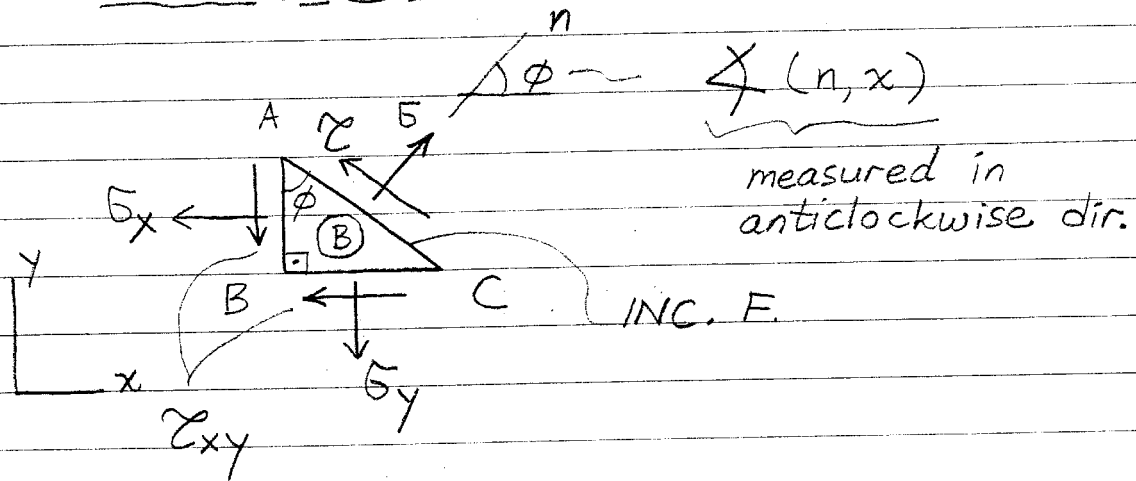 n
ϕ ~ ∡ (n, x)
A τ σ
measured in
anticlockwise dir.
σx ϕ
B
y
B C
INC. F.
x σy
τxy